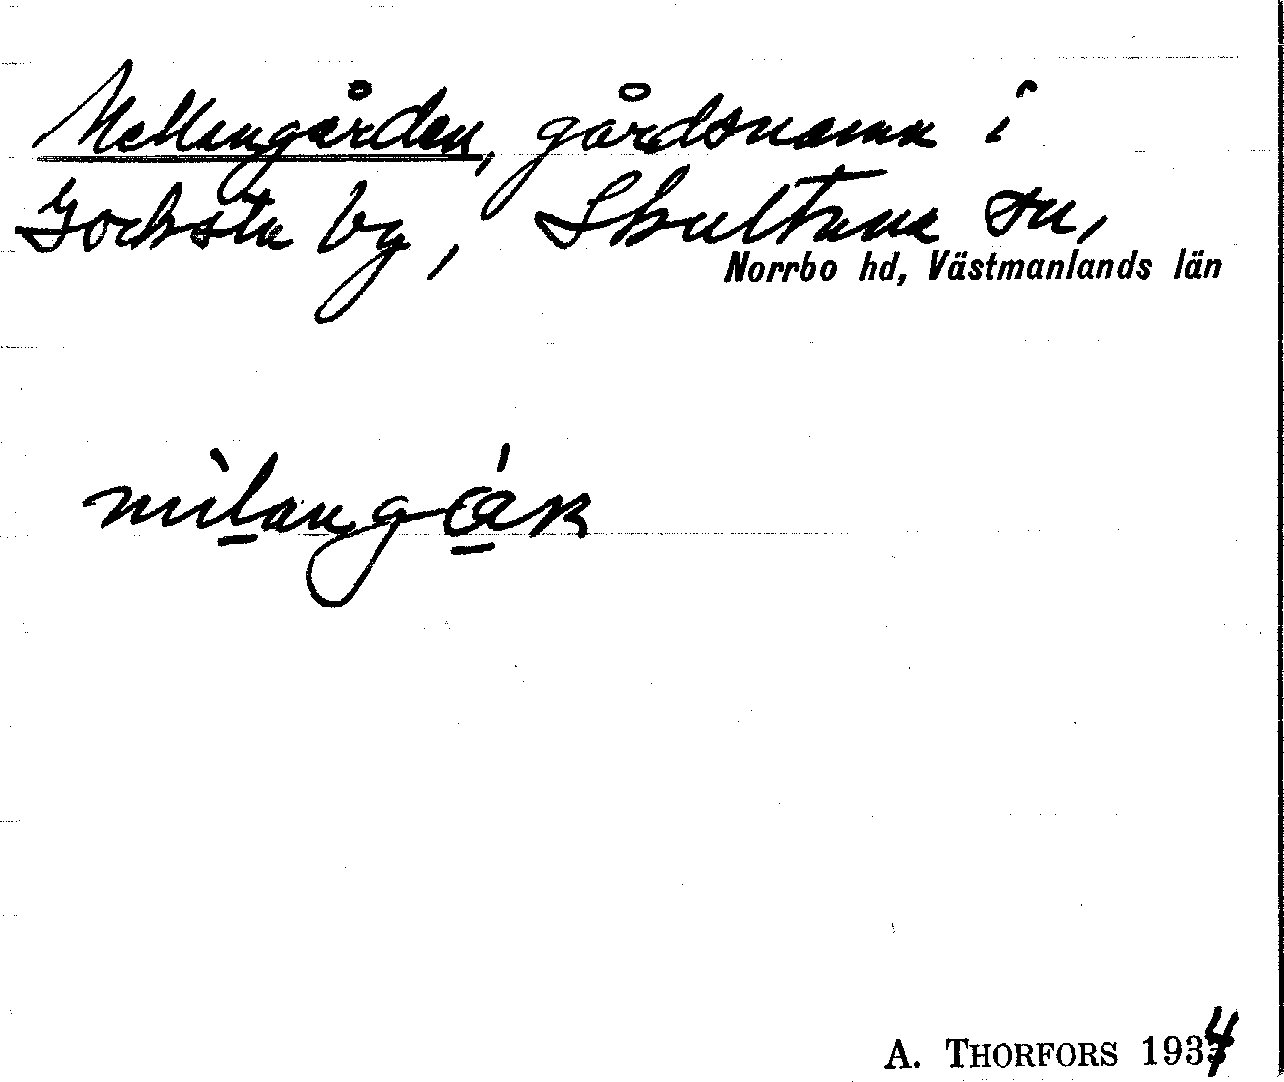 Mellangården, gårdsnamn i
Jocksta by, Skultuna sn,
Norrbo hd, Västmanlands län
A. THORFORS 1934